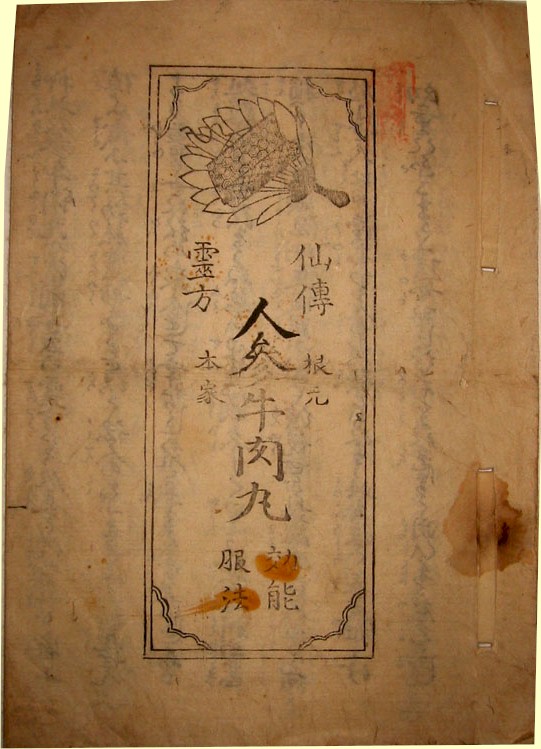 仙傳
靈方
根元
本家
人参牛肉丸
効能
服法